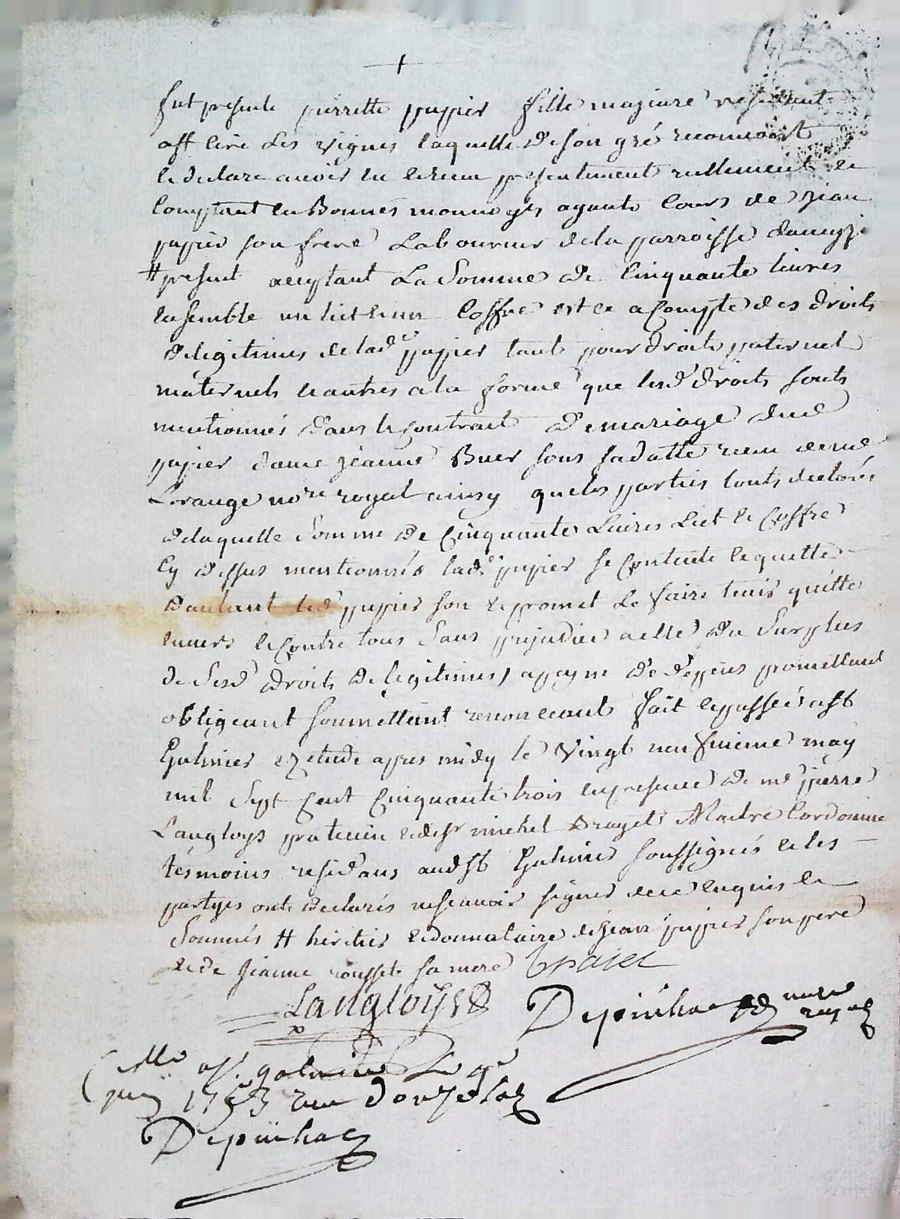 fut presente pierrette papier fille majeure residente
a st cire les vignes laquelle de son gré reconnoit
et declare avoir eu et receu presentement reellement et
comptant en Bonnes monnoyes ayants cours de Jean
papier son frere Laboureur de la parroisse
# present acceptant La Somme de Cinquante livres
ensemble un lict et un Coffre est ce a Compte des droits
de legitimes de lad^e papier tant pour droits paternels
maternels et autres a la forme que lesd droits sonts
mentionnés dans le contrat de mariage dud
papier Jeanne sous sa datte receu de me
Lorange no^re royal ainsy que les parties l'onts declarés
de laquelle Somme de Cinquante Livres Lict et Coffre
Cy dessus mentionnés lad^e papier se contente et quitte
d'autant led papier son et promet Le faire tenir quitte
envers et contre tous Sans prejudice a elle du Surplus
de Sesd droits de legitimes, a payne de depens promettant
obligeant soumettant renonceant fait et passé a st
Galmier etude apres midy le vingt neufvieme may
mil Sept Cent Cinquante trois en presence de m^e pierre
Langloys praticien et de s^r michel Maitre Cordonnier
tesmoins residans aud st Galmier soussignés et les
partyes onts declarés ne scavoir signer de ce enquis et
Sommés # heritier et donnataire de Jean papier son pere
et de Jeanne sa mere
Langloys
Depiuhac no^re royal
st galmier Le
juin 1753 receu douze
Depiuhac